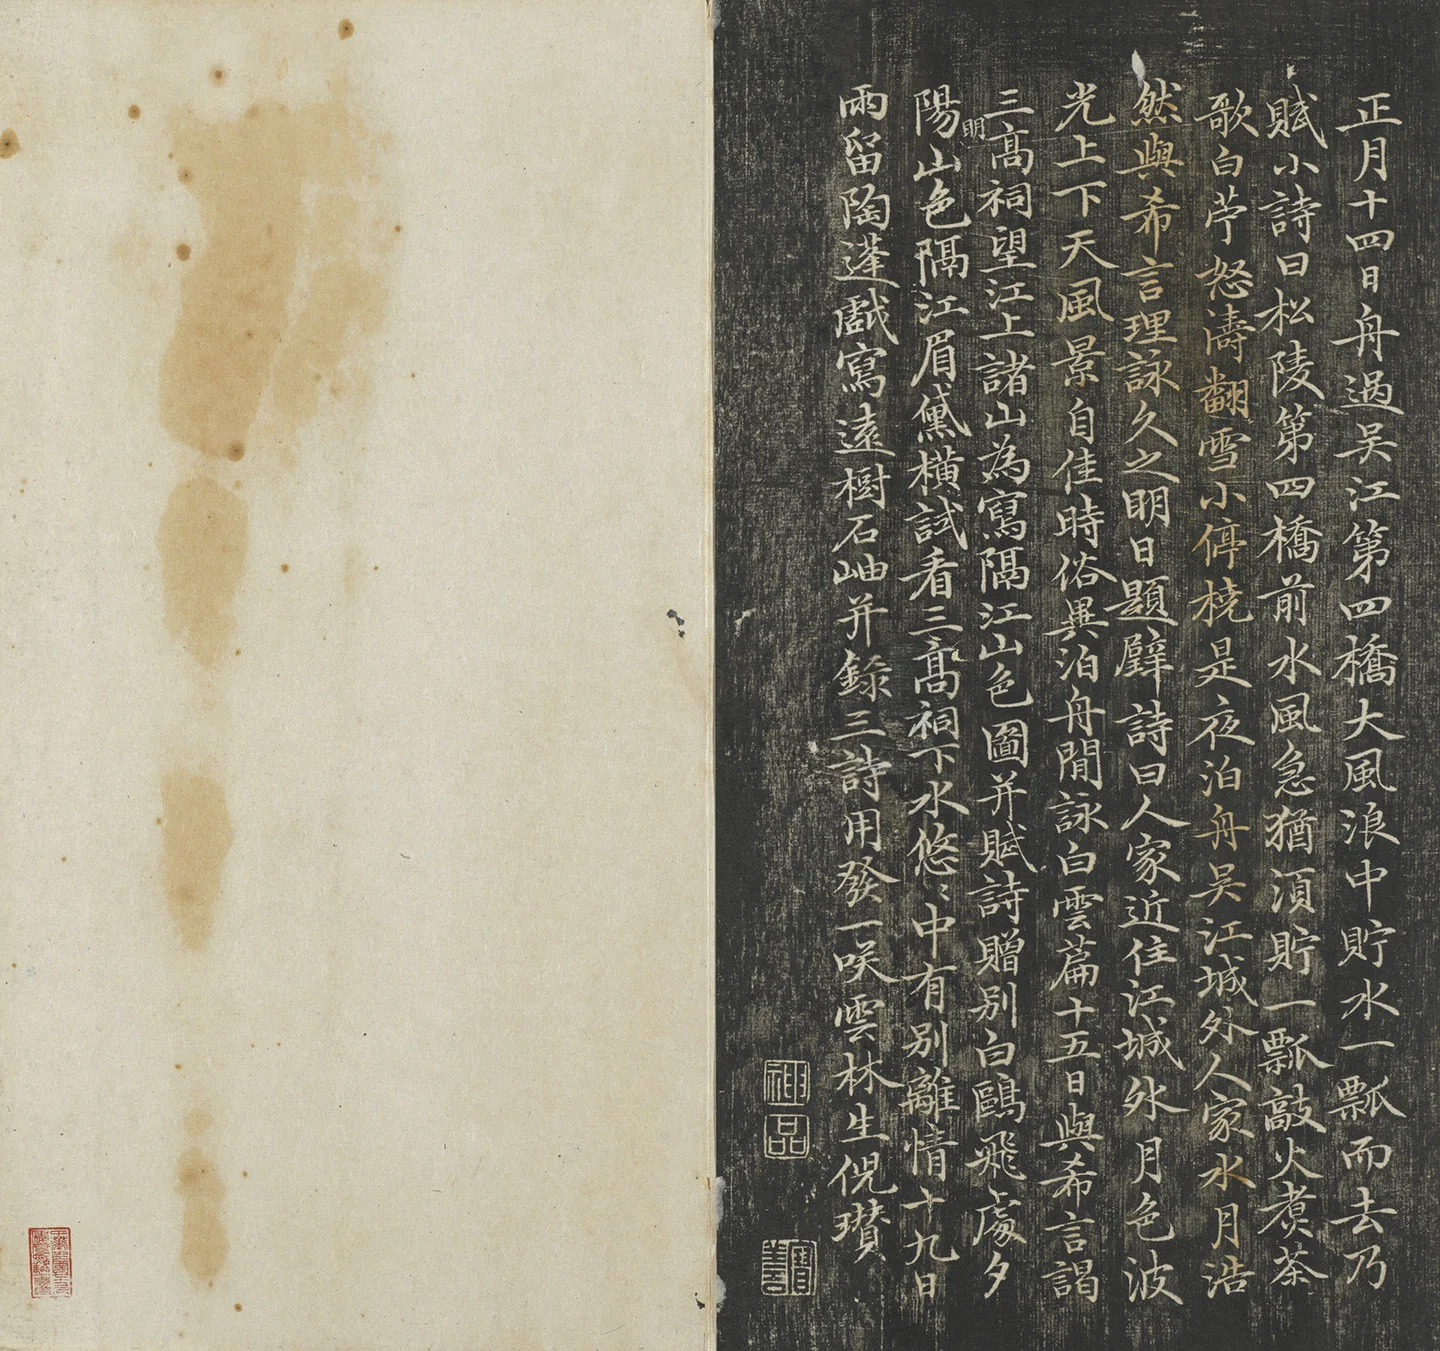 正月十四日舟過吴江第四橋大風浪中貯水一瓢而去乃
賦小詩曰松陵第四橋前水風急猶湏貯一瓢敲火煑茶
歌白苧怒濤翻雪小停橈是夜泊舟吴江城外人家水月浩
然與希言理詠久之明日題壁詩曰人家近住江城外月色波
光上下天風景自佳時俗異泊舟閒詠白雲篇十五日與希言謁
三高祠望江上諸山為寫隔江山色圖并賦詩贈别白鷗飛處夕
明
陽山色隔江眉黛横試看三高祠下水悠〻中有别離情十九日
雨留陶蓬戲寫遠樹石岫并録三詩用發一咲雲林生倪瓚
神
品